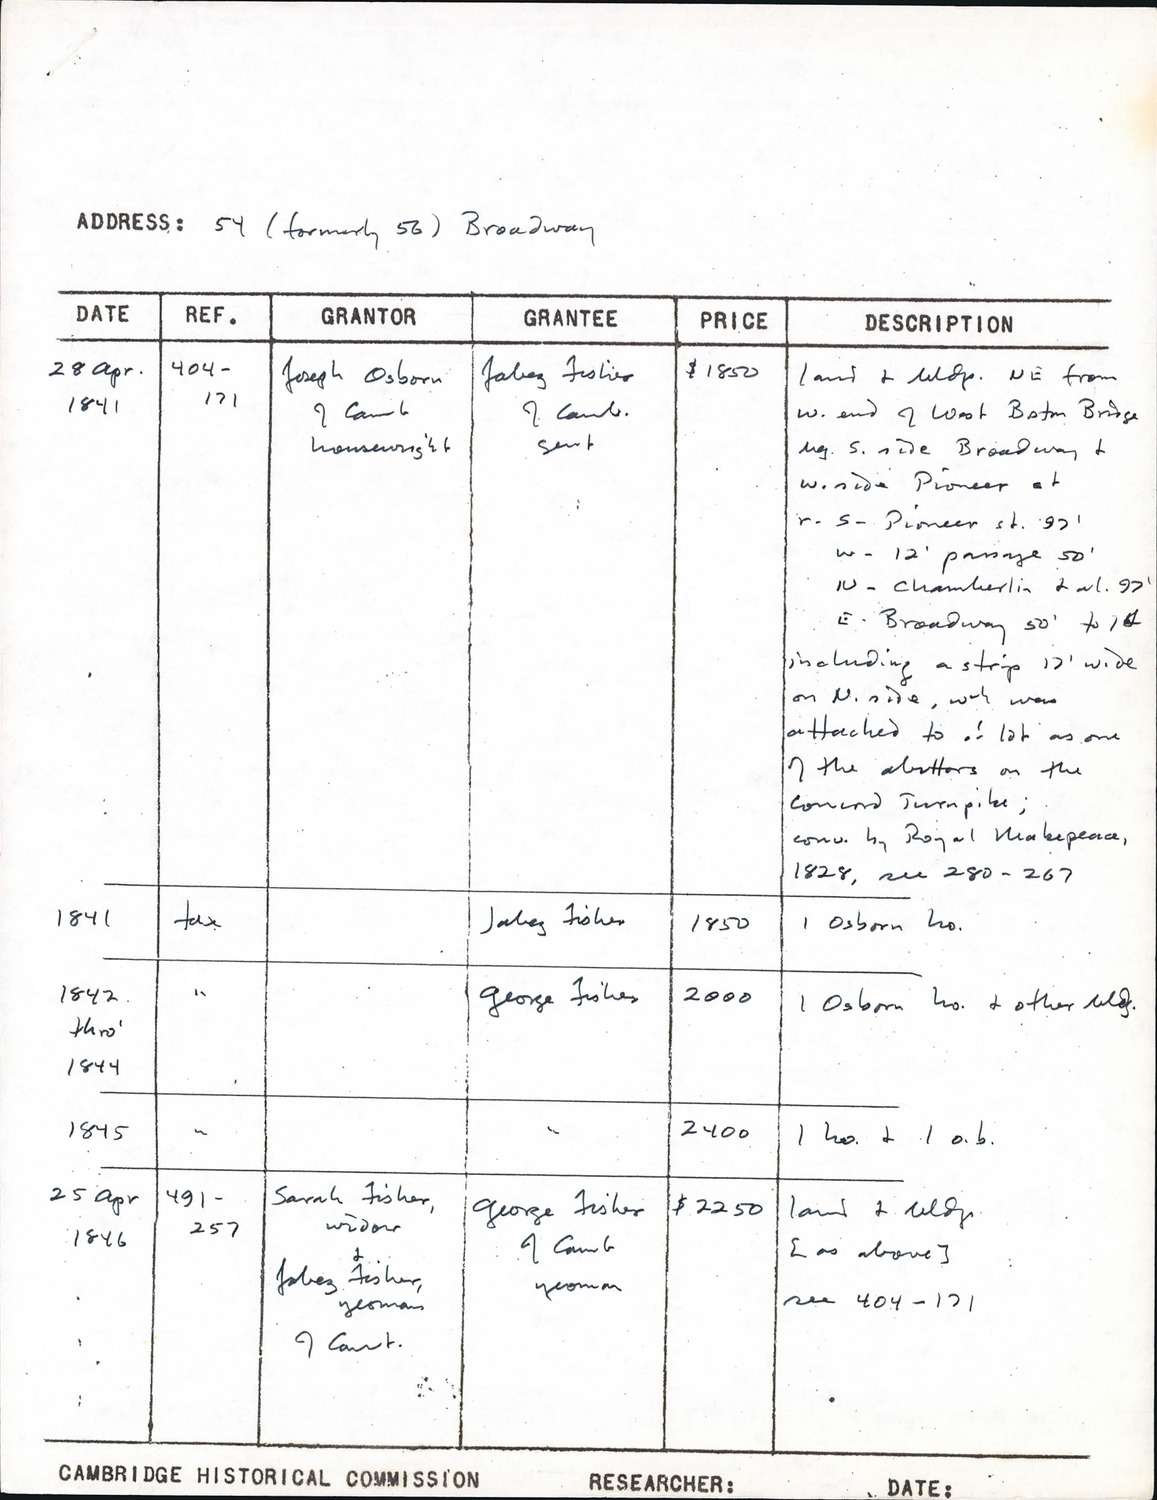 ADDRESS: 54 (formerly 56) Broadway
DATE REF. GRANTOR GRANTEE PRICE DESCRIPTION
28 Apr. 1841
404-171
Joseph Osborn
of Camb
housewright
Jabez Fisher
of Camb.
gent
$1850
land & bldgs. NE from
w. end of West Boston Bridge
S. side Broadway &
w. side Pioneer at
r. S- Pioneer st. 97'
w- 12' passage 50'
N- Chamberlin & al. 97'
E- Broadway 50' to
including a strip 12' wide
on N. side, wh was
attached to lot as one
of the abuttors on the
Concord Turnpike;
conv. by Royal Makepeace,
1828, see 280-267
1841
tax
Jabez Fisher
1850
1 Osborn ho.
1842
thro'
1844
"
George Fisher
2000
1 Osborn ho. & other bldg.
1845
"
"
2400
1 ho. & 1 o.b.
25 Apr
1846
491-
257
Sarah Fisher,
widow
&
Jabez Fisher,
yeoman
of Camb.
George Fisher
of Camb
yeoman
$2250
land & bldgs
[as above]
see 404-171
CAMBRIDGE HISTORICAL COMMISSION RESEARCHER: DATE: